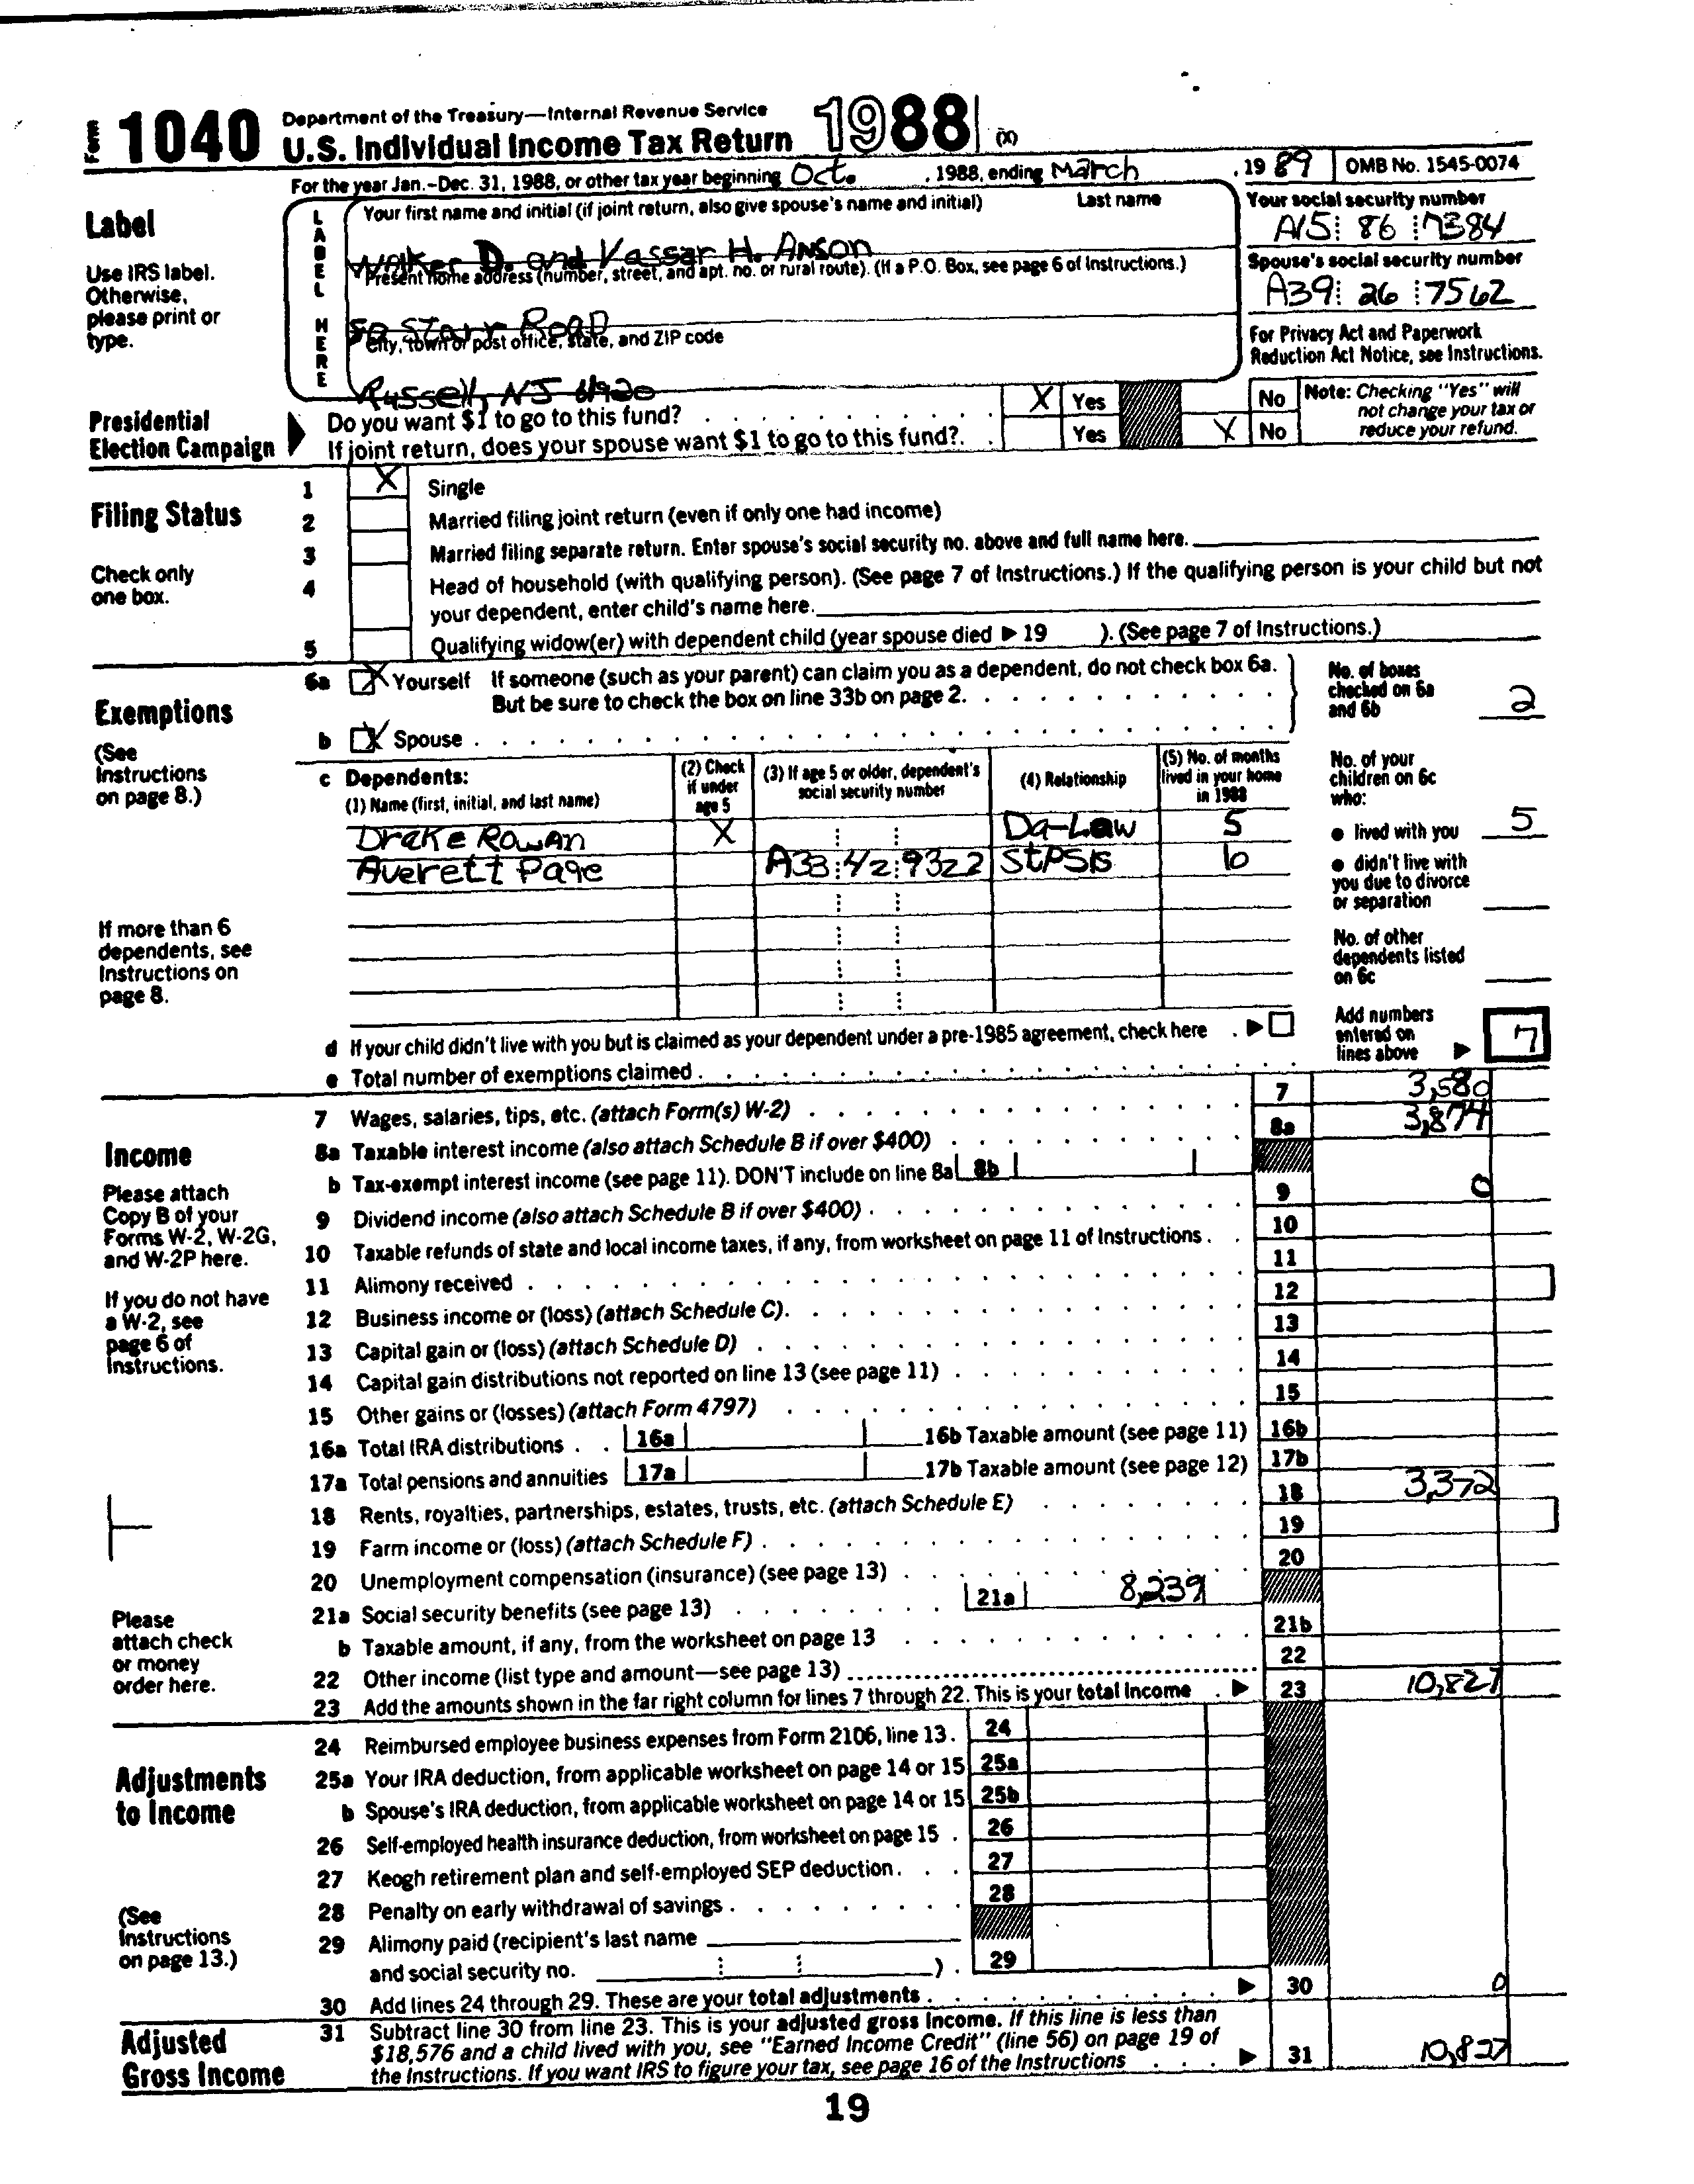 Form 1040 Department of the Treasury—Internal Revenue Service
U.S. Individual Income Tax Return 1988 (X)
For the year Jan.-Dec. 31, 1988, or other tax year beginning Oct. , 1988, ending March , 19 89 OMB No. 1545-0074
Label
Use IRS label. Otherwise, please print or type.
LABEL HERE
Your first name and initial (if joint return, also give spouse's name and initial) Last name
Walker D. and Vassar H. Anson
Your social security number
A15 86 7384
Present home address (number, street, and apt. no. or rural route). (If a P.O. Box, see page 6 of Instructions.)
Starr Road
Spouse's social security number
A39 26 7562
City, town or post office, state, and ZIP code
Russell, NJ
For Privacy Act and Paperwork Reduction Act Notice, see Instructions.
Presidential Election Campaign
Do you want $1 to go to this fund? X Yes No
If joint return, does your spouse want $1 to go to this fund? Yes X No
Note: Checking "Yes" will not change your tax or reduce your refund.
Filing Status
Check only one box.
1 X Single
2 Married filing joint return (even if only one had income)
3 Married filing separate return. Enter spouse's social security no. above and full name here.
4 Head of household (with qualifying person). (See page 7 of Instructions.) If the qualifying person is your child but not
your dependent, enter child's name here.
5 Qualifying widow(er) with dependent child (year spouse died ▶ 19 ). (See page 7 of Instructions.)
Exemptions
(See Instructions on page 8.)
6a X Yourself If someone (such as your parent) can claim you as a dependent, do not check box 6a.
But be sure to check the box on line 33b on page 2.
b X Spouse
No. of boxes checked on 6a and 6b 2
c Dependents:
(1) Name (first, initial, and last name) (2) Check if under age 5 (3) If age 5 or older, dependent's social security number (4) Relationship (5) No. of months lived in your home in 1988
Drake Rowan X Da-Law 5
Averett Page A38 42 9322 StPSis 10
No. of your children on 6c who:
● lived with you 5
● didn't live with you due to divorce or separation
No. of other dependents listed on 6c
If more than 6 dependents, see Instructions on page 8.
d If your child didn't live with you but is claimed as your dependent under a pre-1985 agreement, check here ▶
e Total number of exemptions claimed
Add numbers entered on lines above ▶ 7
Income
Please attach Copy B of your Forms W-2, W-2G, and W-2P here.
If you do not have a W-2, see page 6 of Instructions.
Please attach check or money order here.
7 Wages, salaries, tips, etc. (attach Form(s) W-2) 7 3,580
8a Taxable interest income (also attach Schedule B if over $400) 8a 3,874
b Tax-exempt interest income (see page 11). DON'T include on line 8a 8b
9 Dividend income (also attach Schedule B if over $400) 9 0
10 Taxable refunds of state and local income taxes, if any, from worksheet on page 11 of Instructions 10
11 Alimony received 11
12 Business income or (loss) (attach Schedule C) 12
13 Capital gain or (loss) (attach Schedule D) 13
14 Capital gain distributions not reported on line 13 (see page 11) 14
15 Other gains or (losses) (attach Form 4797) 15
16a Total IRA distributions 16a 16b Taxable amount (see page 11) 16b
17a Total pensions and annuities 17a 17b Taxable amount (see page 12) 17b
18 Rents, royalties, partnerships, estates, trusts, etc. (attach Schedule E) 18 3,372
19 Farm income or (loss) (attach Schedule F) 19
20 Unemployment compensation (insurance) (see page 13) 20
21a Social security benefits (see page 13) 21a 8,239
b Taxable amount, if any, from the worksheet on page 13 21b
22 Other income (list type and amount—see page 13) 22
23 Add the amounts shown in the far right column for lines 7 through 22. This is your total income ▶ 23 10,827
Adjustments to Income
(See Instructions on page 13.)
24 Reimbursed employee business expenses from Form 2106, line 13. 24
25a Your IRA deduction, from applicable worksheet on page 14 or 15 25a
b Spouse's IRA deduction, from applicable worksheet on page 14 or 15 25b
26 Self-employed health insurance deduction, from worksheet on page 15 26
27 Keogh retirement plan and self-employed SEP deduction 27
28 Penalty on early withdrawal of savings 28
29 Alimony paid (recipient's last name
and social security no. ) 29
30 Add lines 24 through 29. These are your total adjustments ▶ 30 0
Adjusted Gross Income
31 Subtract line 30 from line 23. This is your adjusted gross income. If this line is less than
$18,576 and a child lived with you, see "Earned Income Credit" (line 56) on page 19 of
the Instructions. If you want IRS to figure your tax, see page 16 of the Instructions ▶ 31 10,827
19